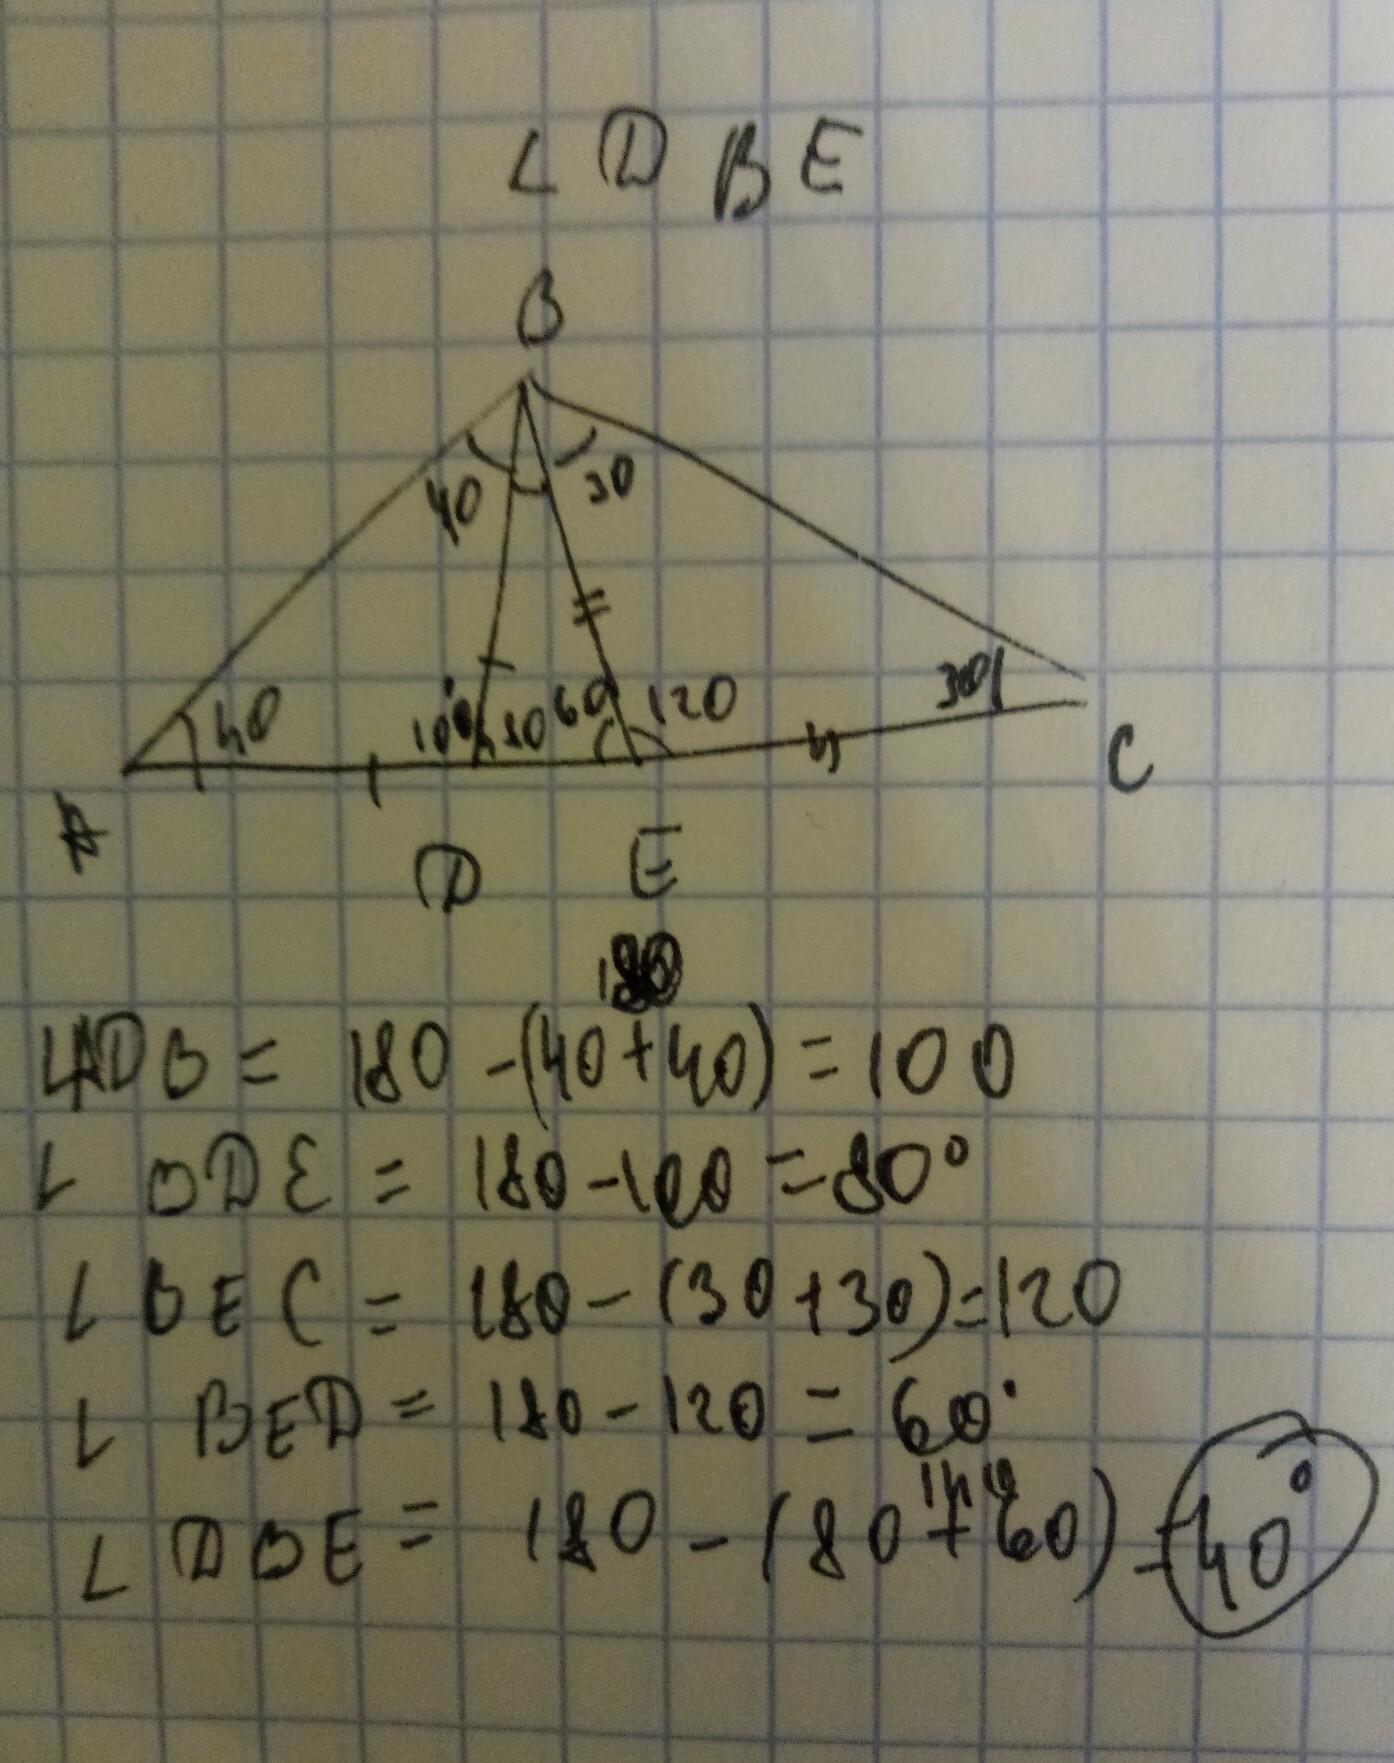 ∠DBE
B
40 30
40 100 80 60 120 30
A D E C
180
∠ADB = 180 - (40 + 40) = 100
∠BDE = 180 - 100 = 80°
∠BEC = 180 - (30 + 30) = 120
∠BED = 180 - 120 = 60°
140
∠DBE = 180 - (80 + 60) = 40°